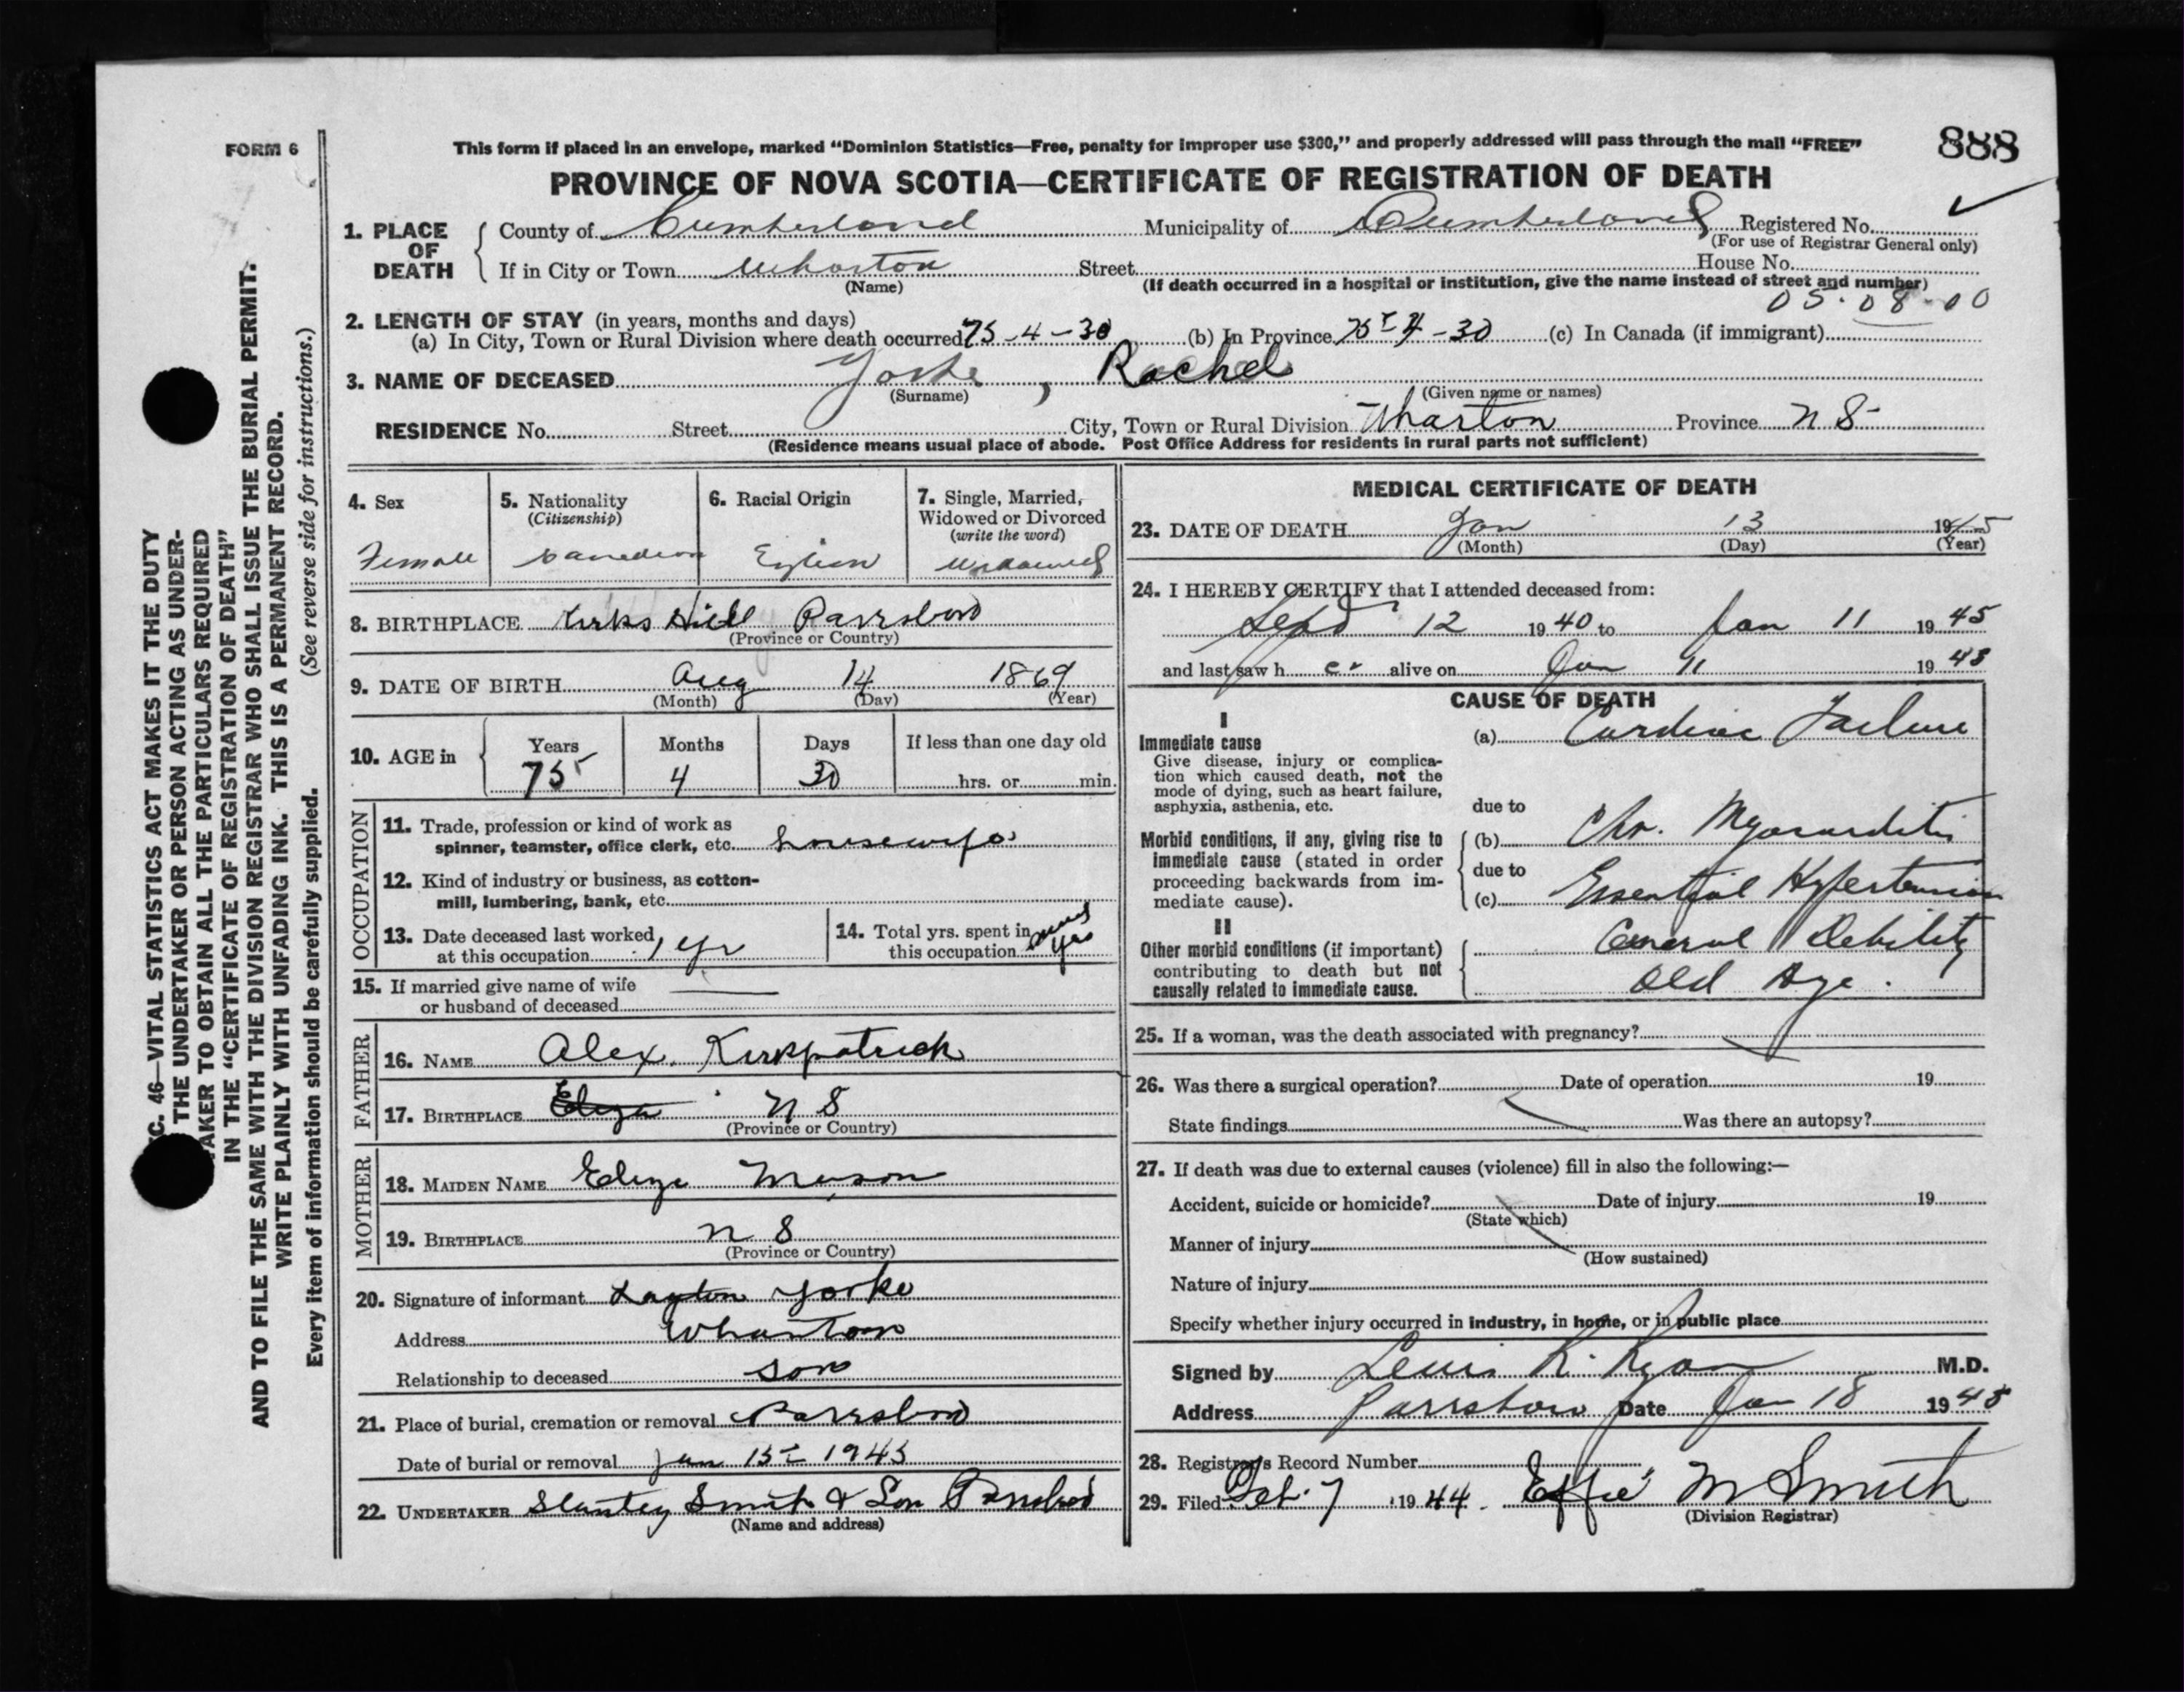 FORM 6
This form if placed in an envelope, marked “Dominion Statistics—Free, penalty for improper use $300,” and properly addressed will pass through the mail “FREE”
888
PROVINCE OF NOVA SCOTIA—CERTIFICATE OF REGISTRATION OF DEATH
1. PLACE OF DEATH
County of Cumberland Municipality of Cumberland Registered No.
(For use of Registrar General only)
If in City or Town Wharton Street House No.
(Name) (If death occurred in a hospital or institution, give the name instead of street and number)
05-08-00
2. LENGTH OF STAY (in years, months and days)
(a) In City, Town or Rural Division where death occurred 75-4-30 (b) In Province 75-4-30 (c) In Canada (if immigrant)
3. NAME OF DECEASED Yorke, Rachel
(Surname) (Given name or names)
RESIDENCE No. Street City, Town or Rural Division Wharton Province N S
(Residence means usual place of abode. Post Office Address for residents in rural parts not sufficient)
4. Sex
Female
5. Nationality
(Citizenship)
Canadian
6. Racial Origin
7. Single, Married, Widowed or Divorced
(write the word)
Widowed
8. BIRTHPLACE Kirks Hill Parrsboro
(Province or Country)
9. DATE OF BIRTH Aug 14 1869
(Month) (Day) (Year)
10. AGE in Years Months Days If less than one day old
75 4 30 hrs. or min.
OCCUPATION
11. Trade, profession or kind of work as
spinner, teamster, office clerk, etc. housewife
12. Kind of industry or business, as cotton-
mill, lumbering, bank, etc.
13. Date deceased last worked
at this occupation 1 yr
14. Total yrs. spent in
this occupation
15. If married give name of wife
or husband of deceased
FATHER
16. NAME Alex. Kirkpatrick
17. BIRTHPLACE Eliza N S
(Province or Country)
MOTHER
18. MAIDEN NAME Eliza Mason
19. BIRTHPLACE N S
(Province or Country)
20. Signature of informant Layton Yorke
Address Wharton
Relationship to deceased son
21. Place of burial, cremation or removal Parrsboro
Date of burial or removal Jan 15 1945
22. UNDERTAKER Stanley Smith & Son Parrsboro
(Name and address)
MEDICAL CERTIFICATE OF DEATH
23. DATE OF DEATH Jan 13 1945
(Month) (Day) (Year)
24. I HEREBY CERTIFY that I attended deceased from:
Sept 12 1940 to Jan 11 1945
and last saw h er alive on Jan 11 19 45
CAUSE OF DEATH
I
Immediate cause
Give disease, injury or complica-
tion which caused death, not the
mode of dying, such as heart failure,
asphyxia, asthenia, etc.
(a) Cardiac Failure
due to
Morbid conditions, if any, giving rise to
immediate cause (stated in order
proceeding backwards from im-
mediate cause).
(b) Chr. Myocarditis
due to
(c) Essential Hypertension
II
Other morbid conditions (if important)
contributing to death but not
causally related to immediate cause.
General Debility
Old Age.
25. If a woman, was the death associated with pregnancy?
26. Was there a surgical operation? Date of operation 19
State findings Was there an autopsy?
27. If death was due to external causes (violence) fill in also the following:—
Accident, suicide or homicide? Date of injury 19
(State which)
Manner of injury
(How sustained)
Nature of injury
Specify whether injury occurred in industry, in home, or in public place
Signed by Lewis R. Ryan M.D.
Address Parrsboro Date Jan 18 1945
28. Registrar's Record Number
29. Filed Feb. 7 1944. Effie M Smith
(Division Registrar)
C. 46—VITAL STATISTICS ACT MAKES IT THE DUTY
THE UNDERTAKER OR PERSON ACTING AS UNDER-
AKER TO OBTAIN ALL THE PARTICULARS REQUIRED
IN THE “CERTIFICATE OF REGISTRATION OF DEATH”
AND TO FILE THE SAME WITH THE DIVISION REGISTRAR WHO SHALL ISSUE THE BURIAL PERMIT.
WRITE PLAINLY WITH UNFADING INK. THIS IS A PERMANENT RECORD.
Every item of information should be carefully supplied. (See reverse side for instructions.)